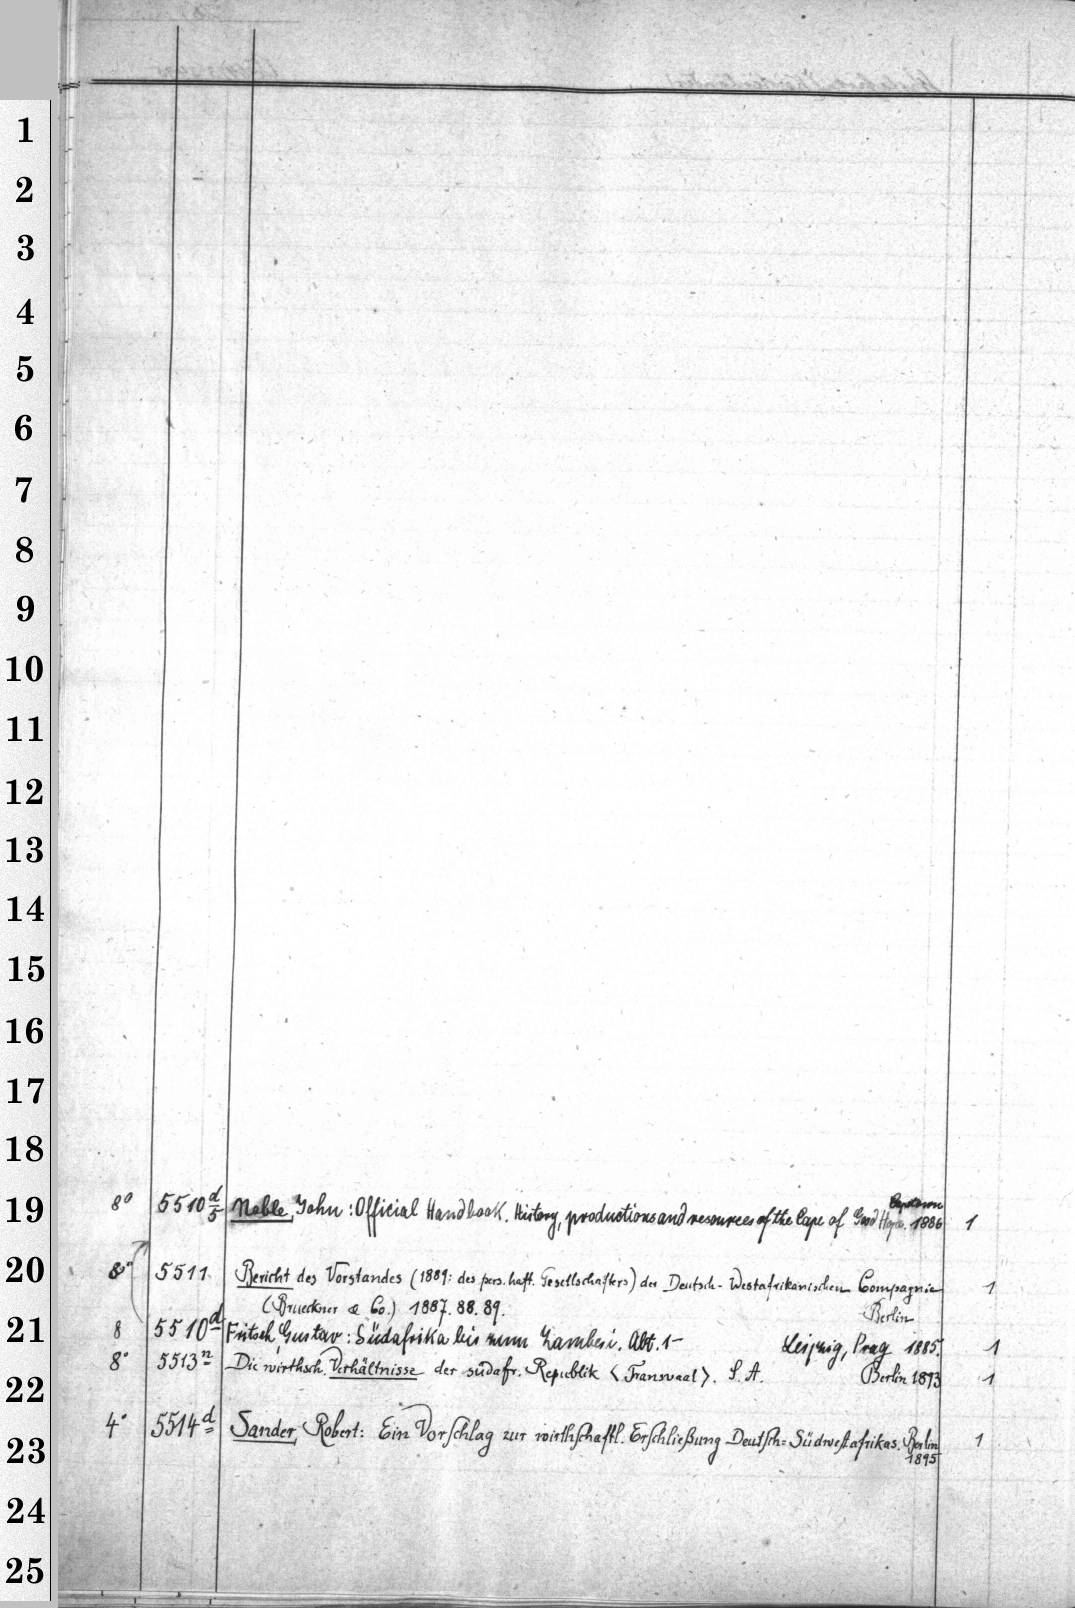 1
2
3
4
5
6
7
8
9
10
11
12
13
14
15
16
17
18
19
8° 5510 d/5 Noble, John: Official Handbook. History, productions and resources of the Cape of Good Hope. Capetown 1886 1
20
8° 5511 Bericht des Vorstandes (1889: des pers. haft. Gesellschafters) der Deutsch-Westafrikanischen Compagnie 1
(Brueckner & Co.) 1887. 88. 89. Berlin
21
8 5510 d Fritsch, Gustav: Südafrika bis zum Zambesi. Abt. 1- Leipzig, Prag 1885. 1
8° 5513 n Die wirthsch. Verhältnisse der südafr. Republik <Transvaal>. S. A. Berlin 1893 1
22
4° 5514 d Sander, Robert: Ein Vorschlag zur wirthschaftl. Erschließung Deutsch-Südwestafrikas. Berlin 1895 1
23
24
25